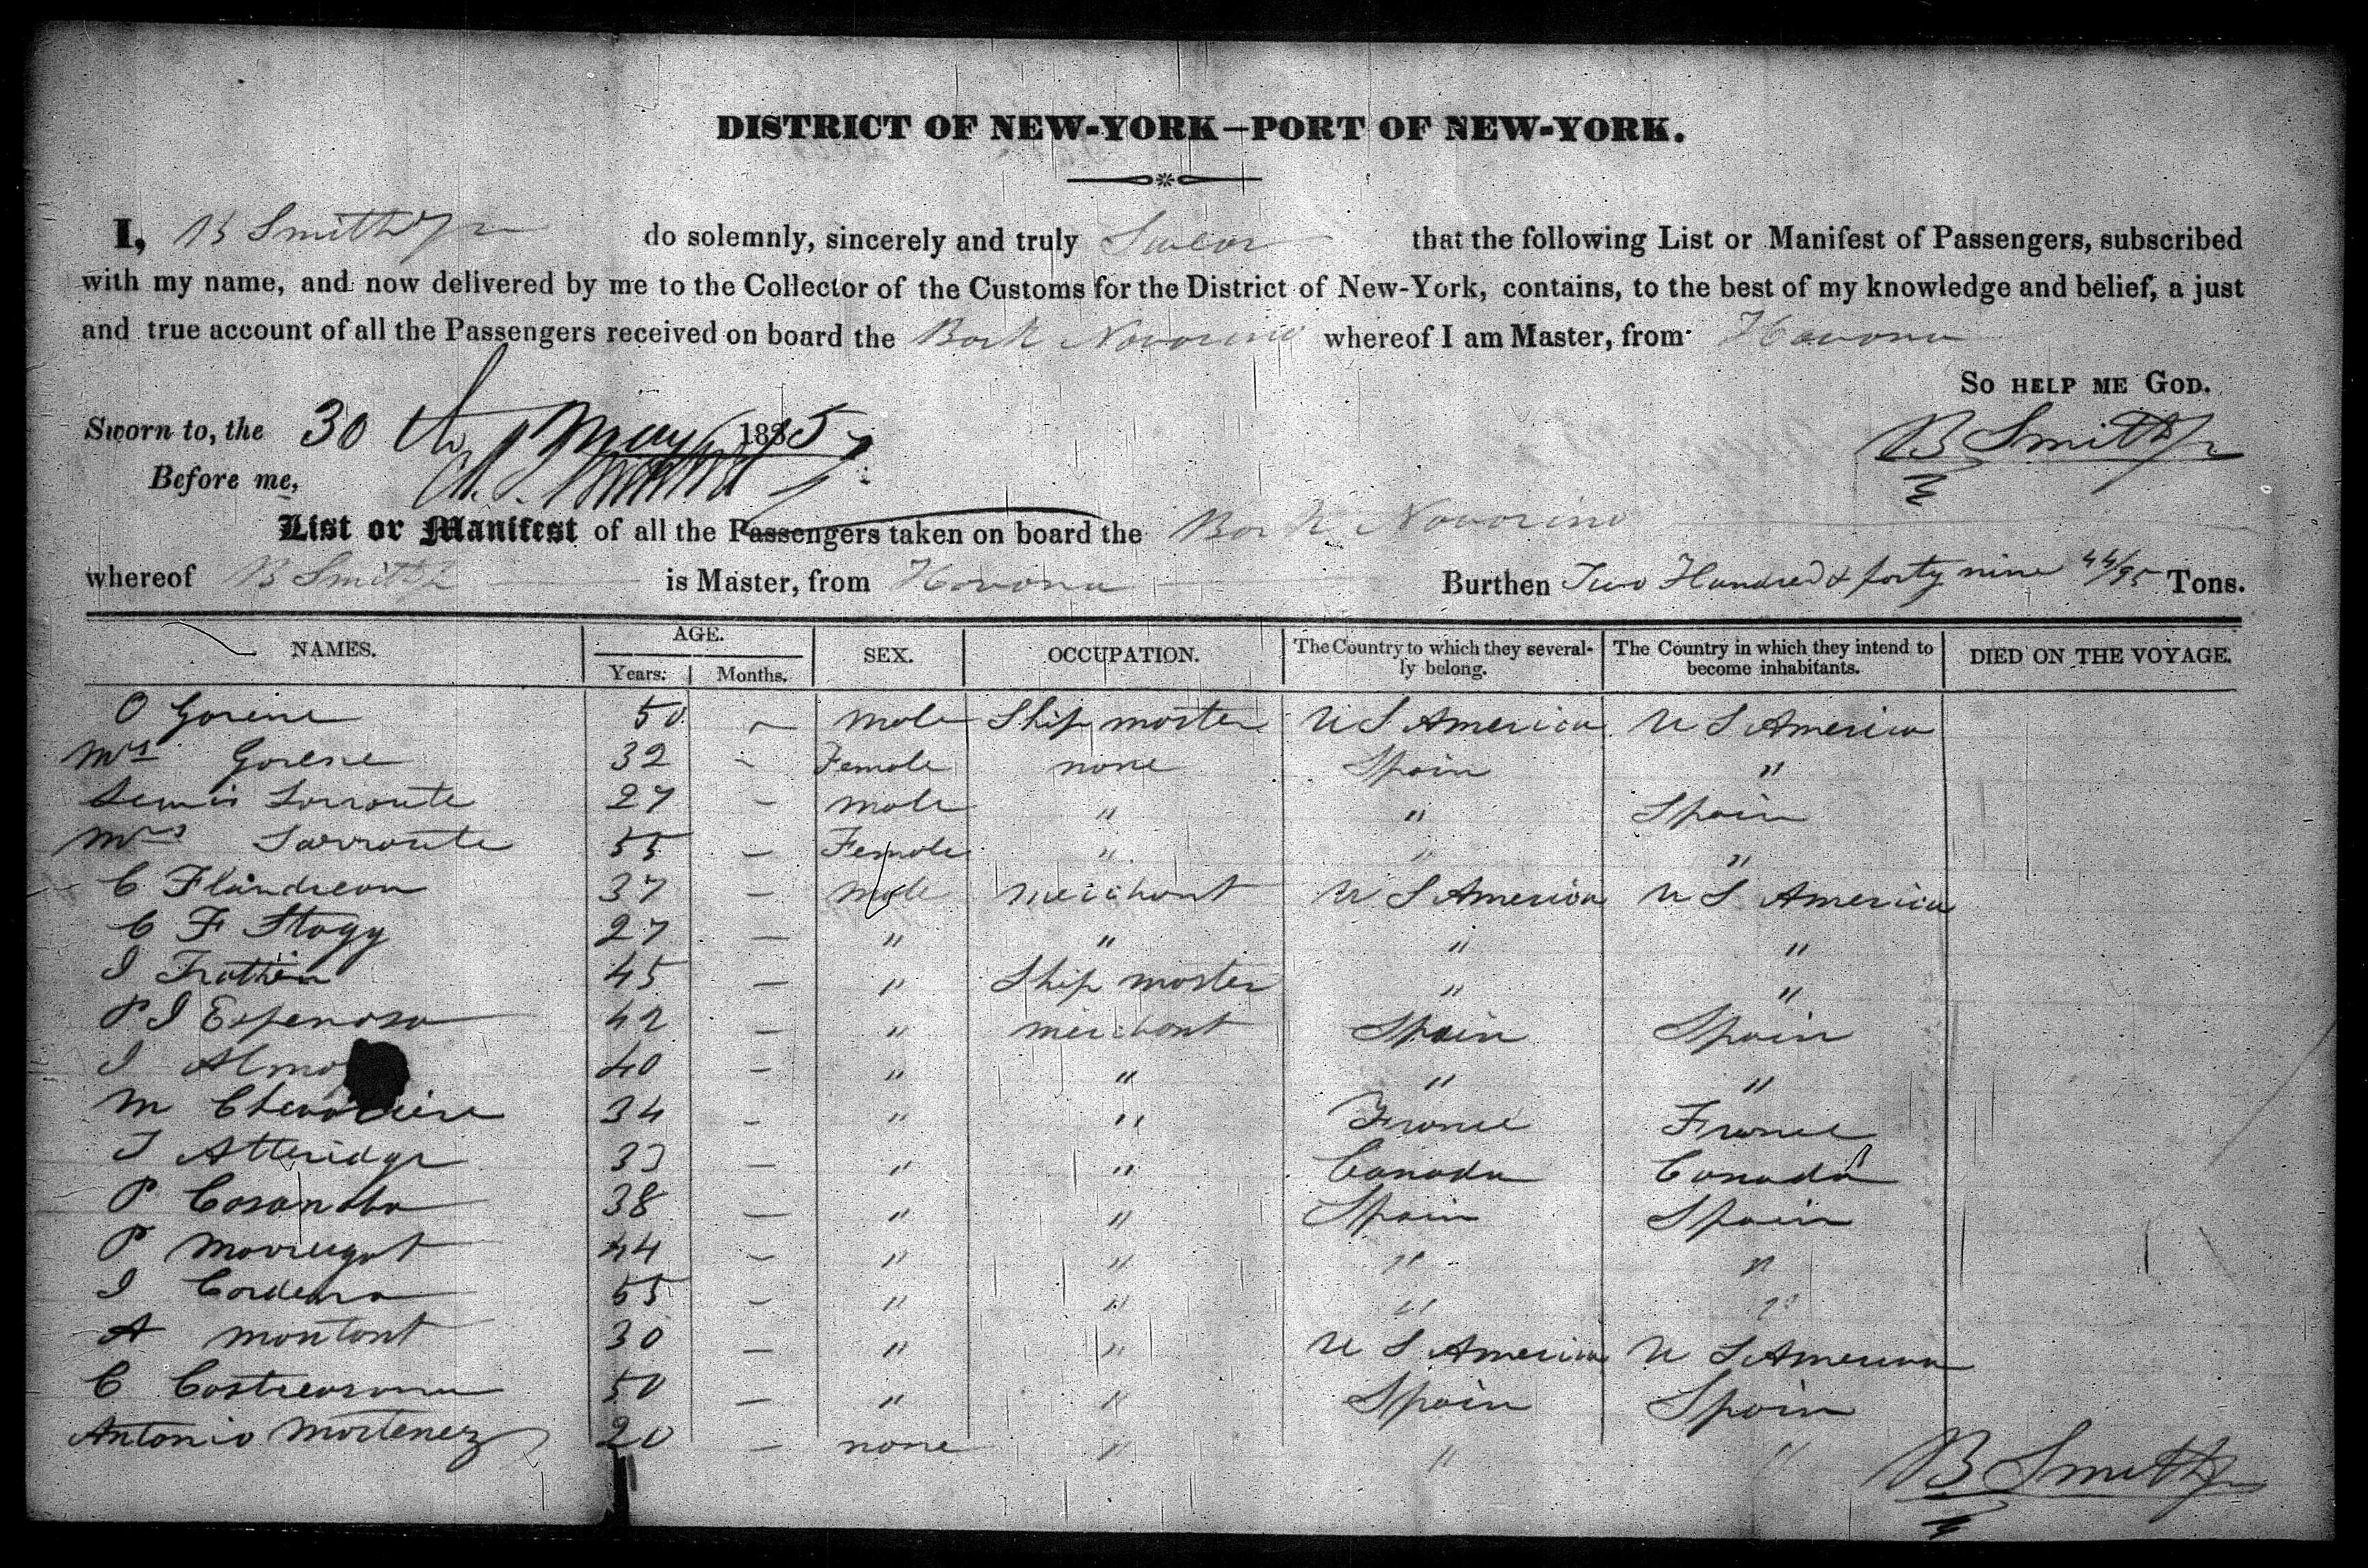 DISTRICT OF NEW-YORK—PORT OF NEW-YORK.
I, B Smith Jr do solemnly, sincerely and truly Swear that the following List or Manifest of Passengers, subscribed
with my name, and now delivered by me to the Collector of the Customs for the District of New-York, contains, to the best of my knowledge and belief, a just
and true account of all the Passengers received on board the Bark Navarino whereof I am Master, from Havana
SO HELP ME GOD.
Sworn to, the 30 th May 1835 B Smith Jr
Before me,
List or Manifest of all the Passengers taken on board the Bark Navarino
whereof B Smith Jr is Master, from Havana Burthen Two Hundred & forty nine 44/95 Tons.
NAMES. AGE. SEX. OCCUPATION. The Country to which they several- The Country in which they intend to DIED ON THE VOYAGE.
Years. Months. ly belong. become inhabitants.
O Gorene 50 - male Ship master U S America U S America
Mrs Gorene 32 - Female none Spain "
Lewis Larraute 27 - male " " Spain
Mrs Larraute 55 - Female " " "
C Flandreau 37 - male merchant U S America U S America
C F Stagg 27 - " " " "
I 45 - " Ship master " "
P I Espenosa 42 - " merchant Spain Spain
I 40 - " " " "
M 34 - " " France France
T Atteridge 33 - " " Canada Canada
P Casanoba 38 - " " Spain Spain
P 44 - " " " "
I Cordena 55 - " " " "
A Montant 30 - " " U S America U S America
C 50 - " " Spain Spain
Antonio Martenez 20 - none " " "
B Smith Jr